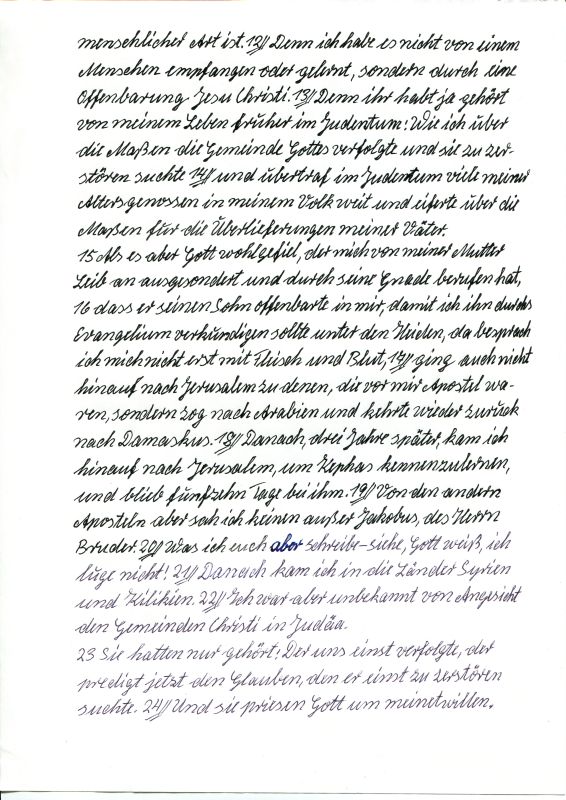 menschlicher Art ist. 12// Denn ich habe es nicht von einem
Menschen empfangen oder gelernt, sondern durch eine
Offenbarung Jesu Christi. 13// Denn ihr habt ja gehört
von meinem Leben früher im Judentum: Wie ich über
die Maßen die Gemeinde Gottes verfolgte und sie zu zer-
stören suchte 14// und übertraf im Judentum viele meiner
Altersgenossen in meinem Volk weit und eiferte über die
Maßen für die Überlieferungen meiner Väter.
15 Als es aber Gott wohlgefiel, der mich von meiner Mutter
Leib an ausgesondert und durch seine Gnade berufen hat,
16 dass er seinen Sohn offenbarte in mir, damit ich ihn durchs
Evangelium verkündigen sollte unter den Heiden, da besprach
ich mich nicht erst mit Fleisch und Blut, 17// ging auch nicht
hinauf nach Jerusalem zu denen, die vor mir Apostel wa-
ren, sondern zog nach Arabien und kehrte wieder zurück
nach Damaskus. 18// Danach, drei Jahre später, kam ich
hinauf nach Jerusalem, um Kephas kennenzulernen,
und blieb fünfzehn Tage bei ihm. 19// Von den andern
Aposteln aber sah ich keinen außer Jakobus, des Herrn
Bruder. 20// Was ich euch aber schreibe-siehe, Gott weiß, ich
lüge nicht! 21// Danach kam ich in die Länder Syrien
und Zilikien. 22// Ich war aber unbekannt von Angesicht
den Gemeinden Christi in Judäa.
23 Sie hatten nur gehört: Der uns einst verfolgte, der
predigt jetzt den Glauben, den er einst zu zerstören
suchte. 24// Und sie priesen Gott um meinetwillen.